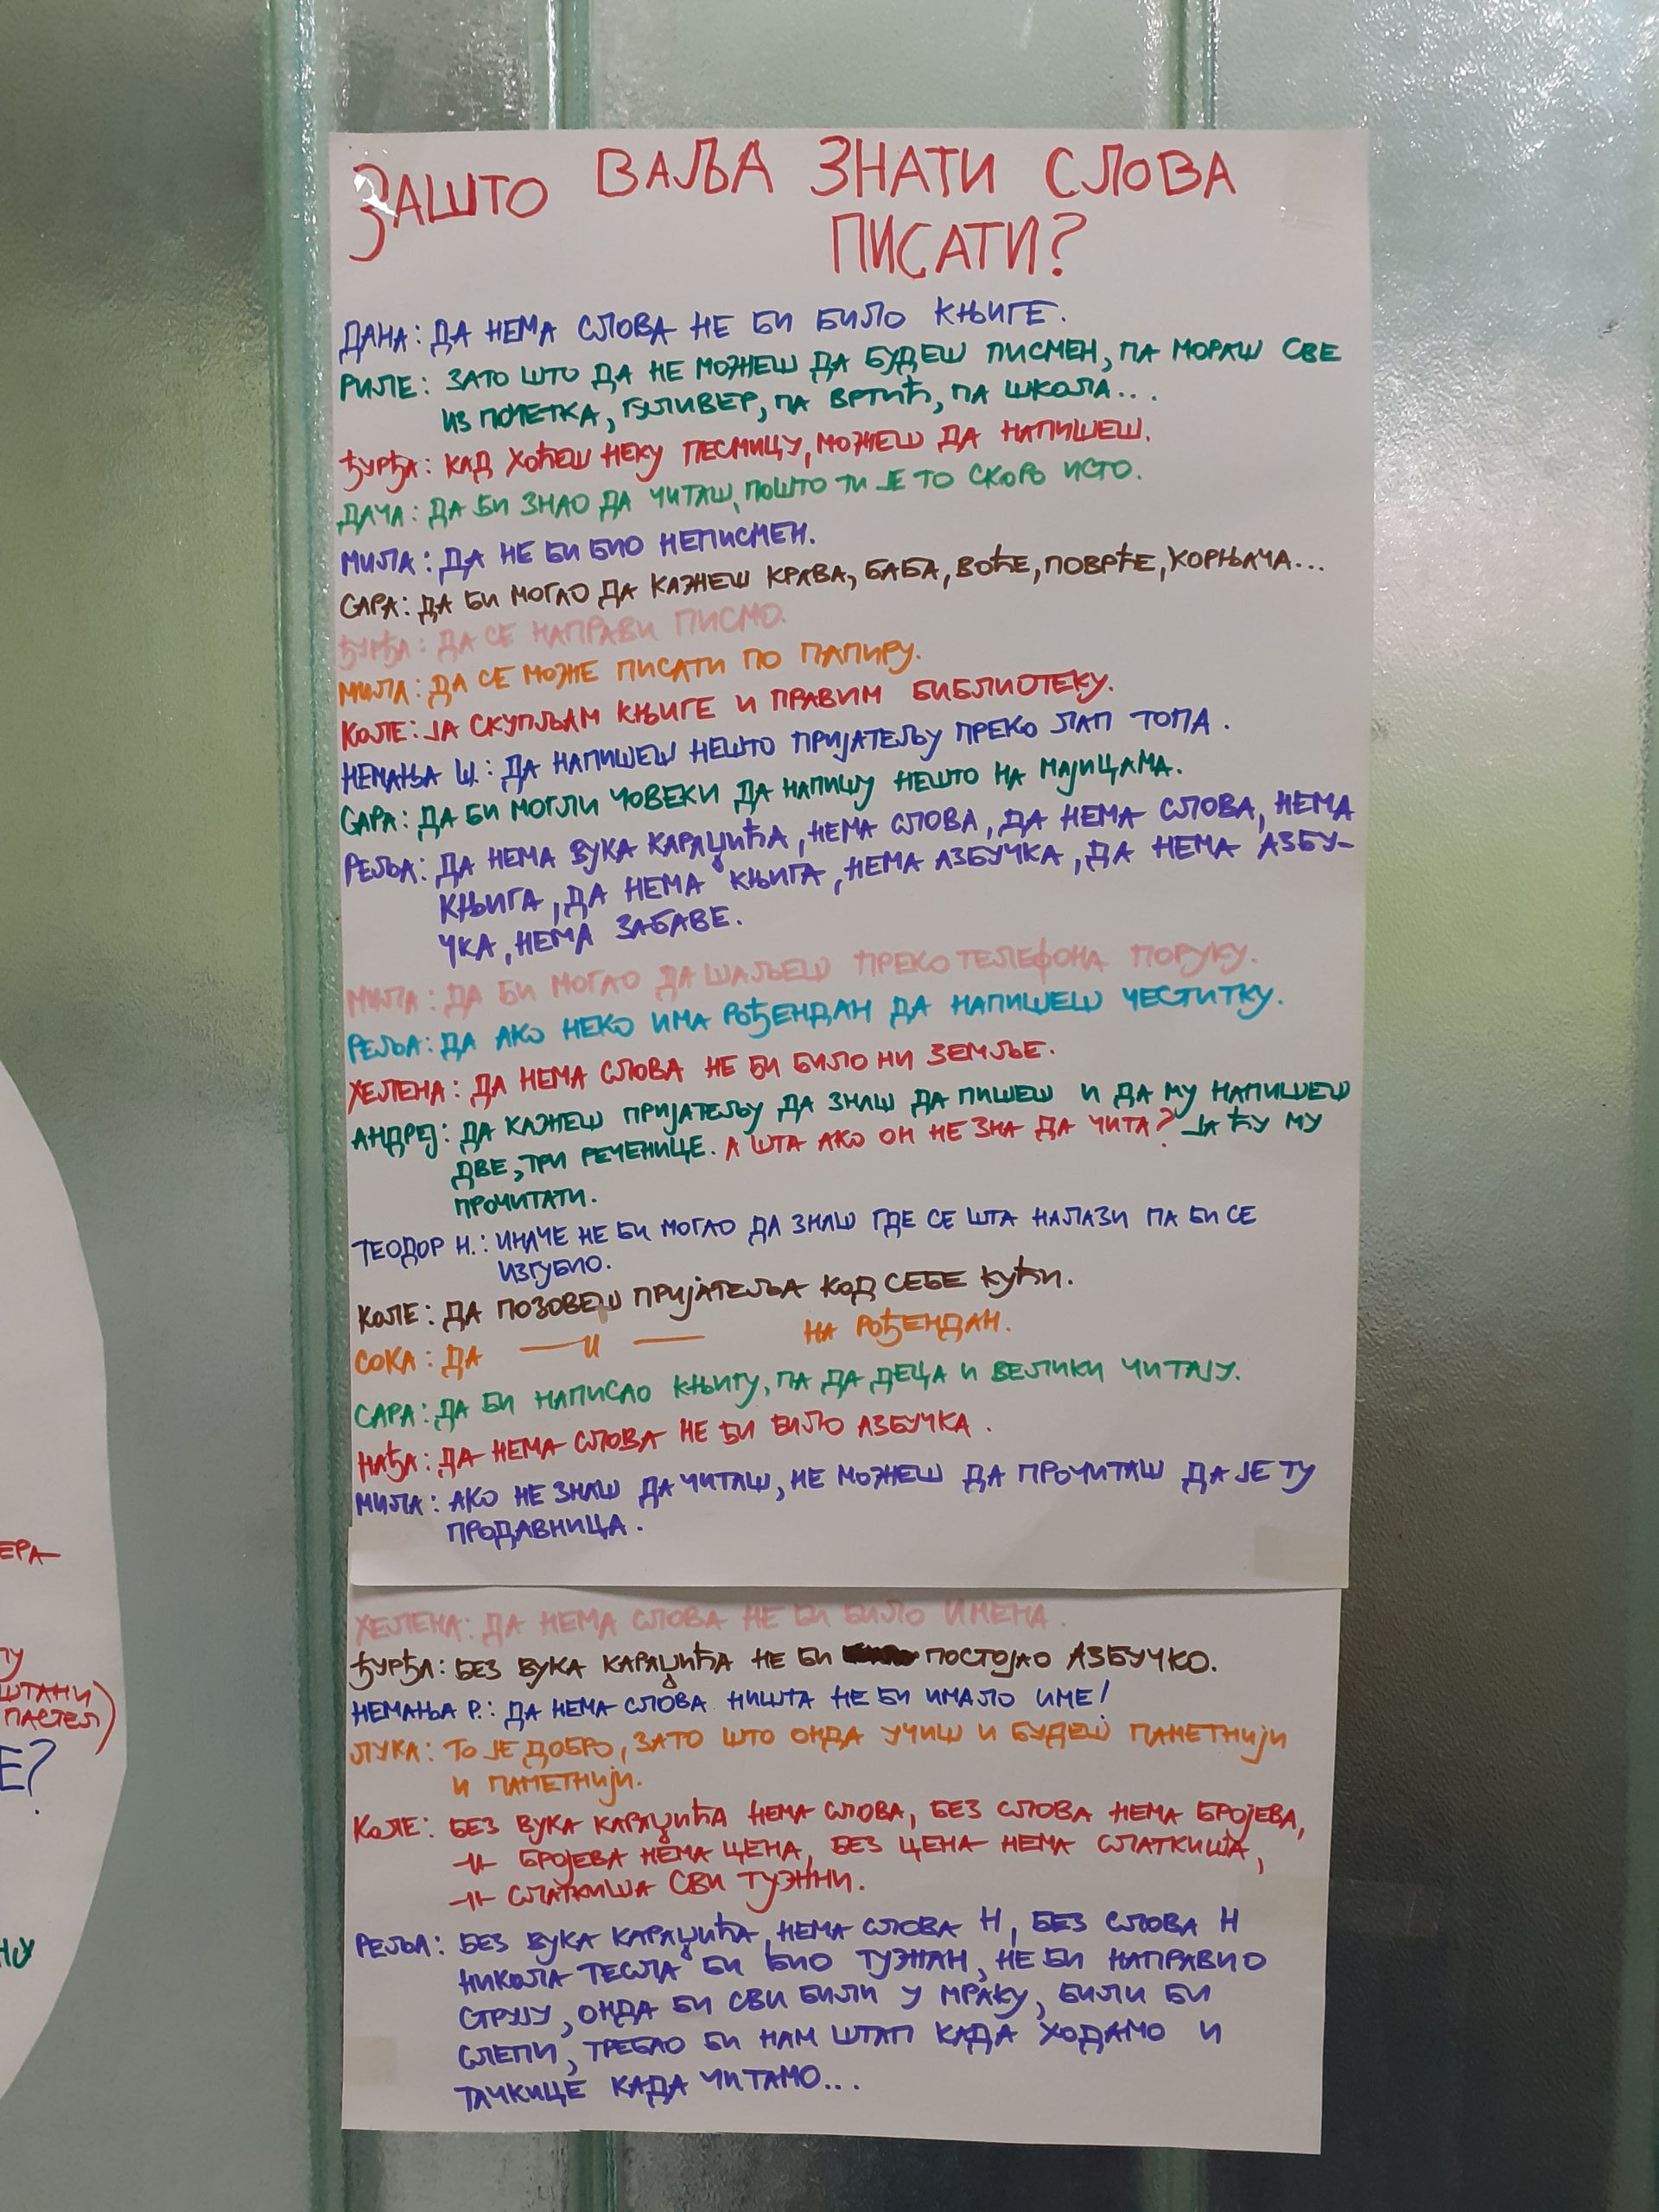 ЗАШТО ВАЉА ЗНАТИ СЛОВА
ПИСАТИ?
ДАНА: ДА НЕМА СЛОВА НЕ БИ БИЛО КЊИГЕ.
РИЛЕ: ЗАТО ШТО ДА НЕ МОЖЕШ ДА БУДЕШ ПИСМЕН, ПА МОРАШ СВЕ
ИЗ ПОЧЕТКА, ГУЛИВЕР, ПА ВРТИЋ, ПА ШКОЛА...
ЂУРЂА: КАД ХОЋЕШ НЕКУ ПЕСМИЦУ, МОЖЕШ ДА НАПИШЕШ.
ДАЧА: ДА БИ ЗНАО ДА ЧИТАШ, ПОШТО ТИ ЈЕ ТО СКОРО ИСТО.
МИЛА: ДА НЕ БИ БИО НЕПИСМЕН.
САРА: ДА БИ МОГАО ДА КАЖЕШ КРАВА, БАБА, ВОЋЕ, ПОВРЋЕ, КОРЊАЧА...
ЂУРЂА: ДА СЕ НАПРАВИ ПИСМО.
МИЛА: ДА СЕ МОЖЕ ПИСАТИ ПО ПАПИРУ.
КОЛЕ: ЈА СКУПЉАМ КЊИГЕ И ПРАВИМ БИБЛИОТЕКУ.
НЕМАЊА Ш.: ДА НАПИШЕШ НЕШТО ПРИЈАТЕЉУ ПРЕКО ЛАП ТОПА.
САРА: ДА БИ МОГЛИ ЧОВЕКИ ДА НАПИШУ НЕШТО НА МАЈИЦАМА.
РЕЉА: ДА НЕМА ВУКА КАРАЏИЋА, НЕМА СЛОВА, ДА НЕМА СЛОВА, НЕМА
КЊИГА, ДА НЕМА КЊИГА, НЕМА АЗБУЧКА, ДА НЕМА АЗБУ-
ЧКА, НЕМА ЗАБАВЕ.
МИЛА: ДА БИ МОГАО ДА ШАЉЕШ ПРЕКО ТЕЛЕФОНА ПОРУКУ.
РЕЉА: ДА АКО НЕКО ИМА РОЂЕНДАН ДА НАПИШЕШ ЧЕСТИТКУ.
ХЕЛЕНА: ДА НЕМА СЛОВА НЕ БИ БИЛО НИ ЗЕМЉЕ.
АНДРЕЈ: ДА КАЖЕШ ПРИЈАТЕЉУ ДА ЗНАШ ДА ПИШЕШ И ДА МУ НАПИШЕШ
ДВЕ, ТРИ РЕЧЕНИЦЕ. А ШТА АКО ОН НЕ ЗНА ДА ЧИТА? ЈА ЋУ МУ
ПРОЧИТАТИ.
ТЕОДОР Н.: ИНАЧЕ НЕ БИ МОГАО ДА ЗНАШ ГДЕ СЕ ШТА НАЛАЗИ ПА БИ СЕ
ИЗГУБИО.
КОЛЕ: ДА ПОЗОВЕШ ПРИЈАТЕЉА КОД СЕБЕ КУЋИ.
СОКА: ДА —— || —— НА РОЂЕНДАН.
САРА: ДА БИ НАПИСАО КЊИГУ, ПА ДА ДЕЦА И ВЕЛИКИ ЧИТАЈУ.
НАЂА: ДА НЕМА СЛОВА НЕ БИ БИЛО АЗБУЧКА.
МИЛА: АКО НЕ ЗНАШ ДА ЧИТАШ, НЕ МОЖЕШ ДА ПРОЧИТАШ ДА ЈЕ ТУ
ПРОДАВНИЦА.
ХЕЛЕНА: ДА НЕМА СЛОВА НЕ БИ БИЛО ИМЕНА.
ЂУРЂА: БЕЗ ВУКА КАРАЏИЋА НЕ БИ ПОСТОЈАО АЗБУЧКО.
НЕМАЊА Р.: ДА НЕМА СЛОВА НИШТА НЕ БИ ИМАЛО ИМЕ!
ЛУКА: ТО ЈЕ ДОБРО, ЗАТО ШТО ОНДА УЧИШ И БУДЕШ ПАМЕТНИЈИ
И ПАМЕТНИЈИ.
КОЛЕ: БЕЗ ВУКА КАРАЏИЋА НЕМА СЛОВА, БЕЗ СЛОВА НЕМА БРОЈЕВА,
-||- БРОЈЕВА НЕМА ЦЕНА, БЕЗ ЦЕНА НЕМА СЛАТКИША,
-||- СЛАТКИША СВИ ТУЖНИ.
РЕЉА: БЕЗ ВУКА КАРАЏИЋА, НЕМА СЛОВА Н, БЕЗ СЛОВА Н
НИКОЛА ТЕСЛА БИ БИО ТУЖАН, НЕ БИ НАПРАВИО
СТРУЈУ, ОНДА БИ СВИ БИЛИ У МРАКУ, БИЛИ БИ
СЛЕПИ, ТРЕБАО БИ НАМ ШТАП КАДА ХОДАМО И
ТАЧКИЦЕ КАДА ЧИТАМО...
ЕРА-
ШТАНИ
ПАСТЕЛ)
Е?